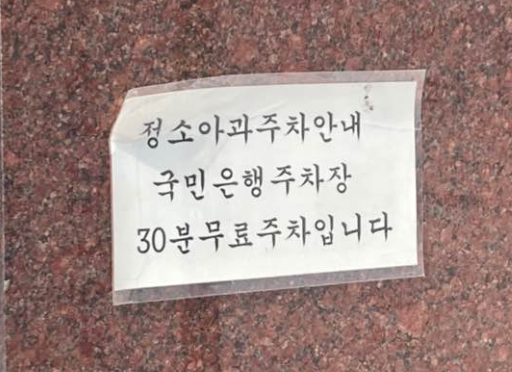 정소아과주차안내
국민은행주차장
30분무료주차입니다